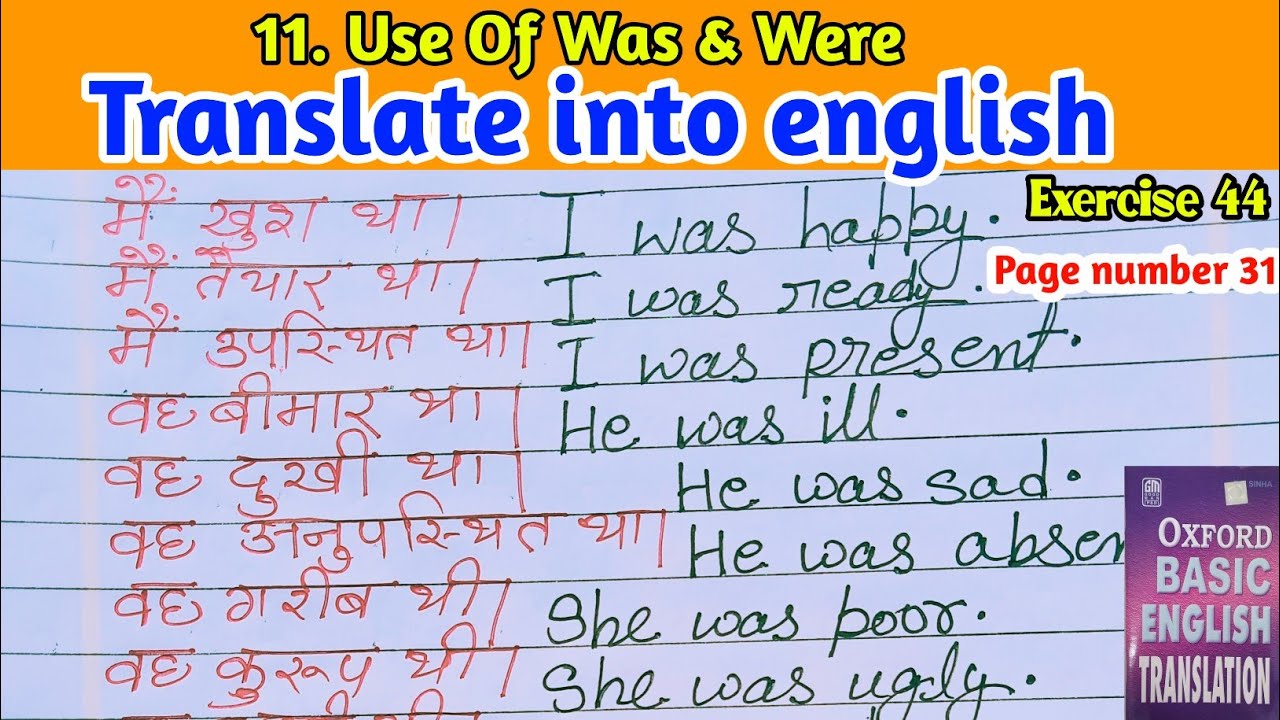 11. Use Of Was & Were
Translate into english
Exercise 44
Page number 31
मैं खुश था। I was happy.
मैं तैयार था। I was ready.
मैं उपस्थित था। I was present.
वह बीमार था। He was ill.
वह दुखी था। He was sad.
वह अनुपस्थित था। He was absen
वह गरीब थी। She was poor.
वह कुरूप थी। She was ugly.
GM
SINHA
OXFORD
BASIC
ENGLISH
TRANSLATION